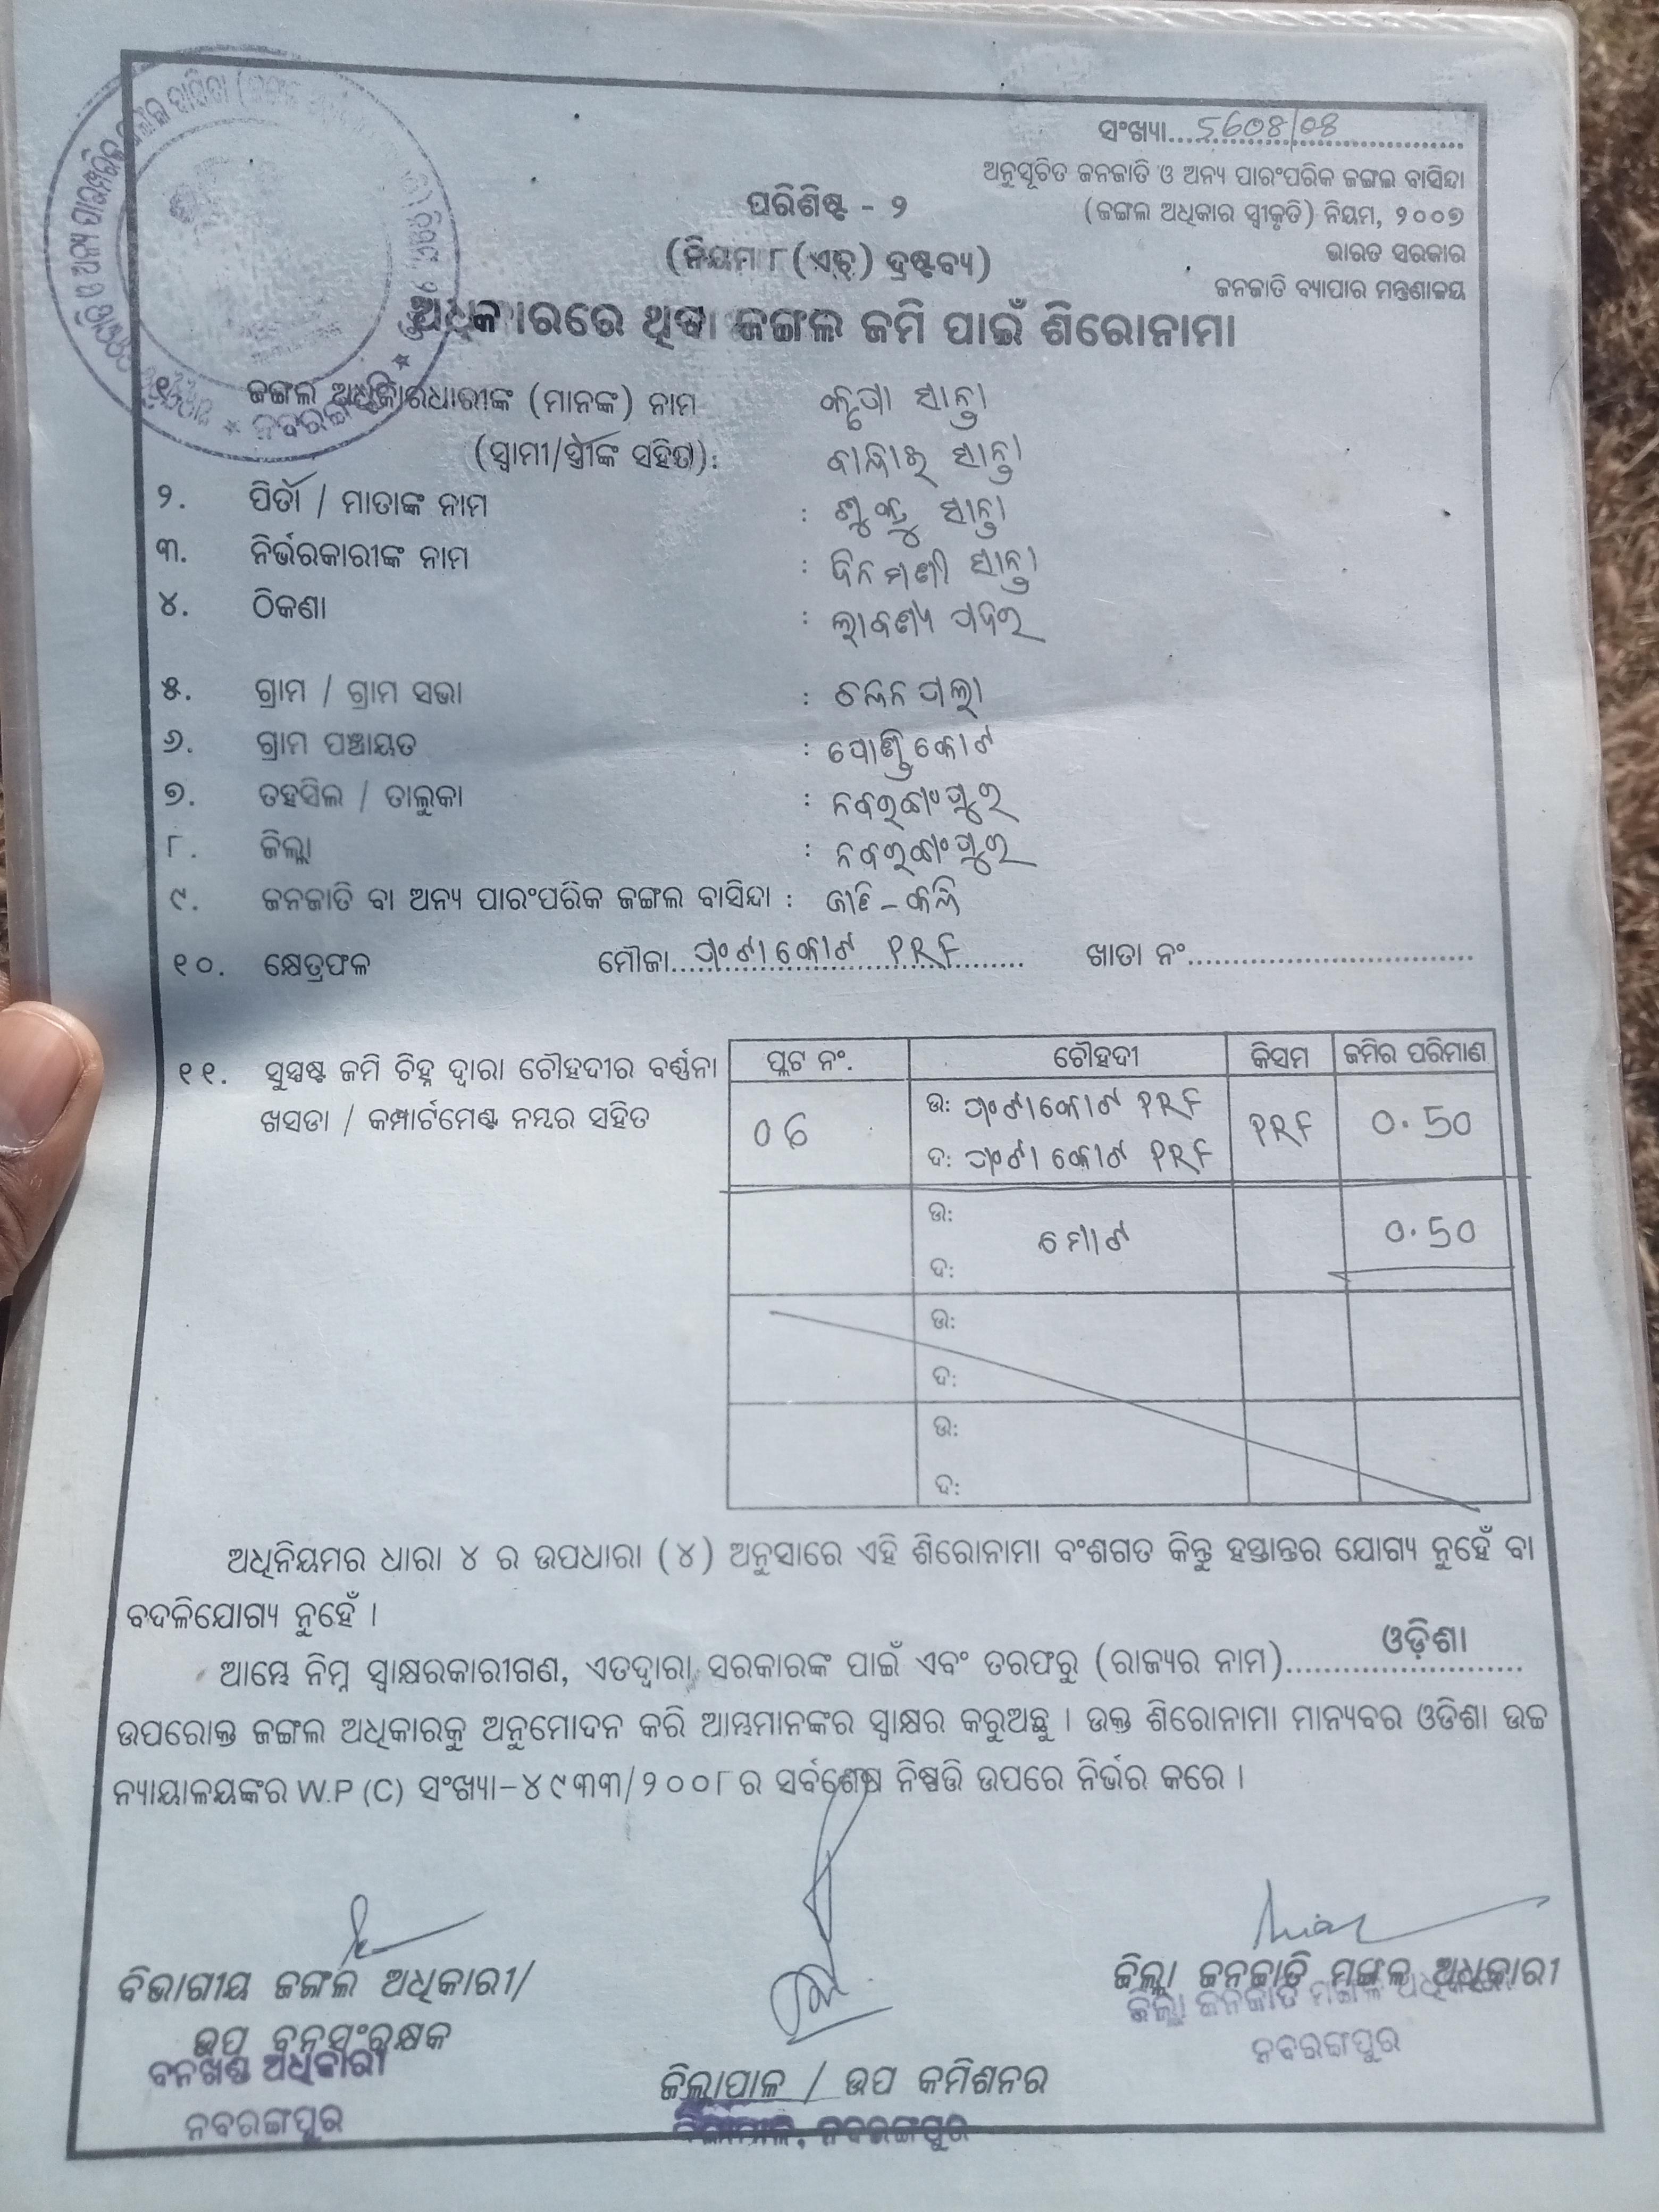 ସଂଖ୍ୟା...୨୬୦୫/୦୫
ଅନୁସୂଚିତ ଜନଜାତି ଓ ଅନ୍ୟ ପାରଂପରିକ ଜଙ୍ଗଲ ବାସିନ୍ଦା
(ଜଙ୍ଗଲ ଅଧିକାର ସ୍ୱୀକୃତି) ନିୟମ, ୨୦୦୭
ଭାରତ ସରକାର
ଜନଜାତି ବ୍ୟାପାର ମନ୍ତ୍ରଣାଳୟ
ପରିଶିଷ୍ଟ - ୨
(ନିୟମ ୮ (ଏଚ୍) ଦ୍ରଷ୍ଟବ୍ୟ)
ଅଧିକାରରେ ଥିବା ଜଙ୍ଗଲ ଜମି ପାଇଁ ଶିରୋନାମା
୧. ଜଙ୍ଗଲ ଅଧିକାରଧାରୀଙ୍କ (ମାନଙ୍କ) ନାମ କୃପା ସାନ୍ତା
(ସ୍ୱାମୀ/ସ୍ତ୍ରୀଙ୍କ ସହିତ): ସାନ୍ତା
୨. ପିତା / ମାତାଙ୍କ ନାମ : ସାନ୍ତା
୩. ନିର୍ଭରକାରୀଙ୍କ ନାମ : ଦିନମଣୀ ସାନ୍ତା
୪. ଠିକଣା :
୫. ଗ୍ରାମ / ଗ୍ରାମ ସଭା :
୬. ଗ୍ରାମ ପଞ୍ଚାୟତ : ପୋଣ୍ଡିକୋଟ
୭. ତହସିଲ / ତାଲୁକା : ନବରଙ୍ଗପୁର
୮. ଜିଲ୍ଲା : ନବରଙ୍ଗପୁର
୯. ଜନଜାତି ବା ଅନ୍ୟ ପାରଂପରିକ ଜଙ୍ଗଲ ବାସିନ୍ଦା : ଜାତି -
୧୦. କ୍ଷେତ୍ରଫଳ ମୌଜା... PRF... ଖାତା ନଂ...
୧୧. ସୁସ୍ପଷ୍ଟ ଜମି ଚିହ୍ନ ଦ୍ୱାରା ଚୌହଦୀର ବର୍ଣ୍ଣନା
ଖସଡା / କମ୍ପାର୍ଟମେଣ୍ଟ ନମ୍ବର ସହିତ
ପ୍ଲଟ ନଂ. ଚୌହଦୀ କିସମ ଜମିର ପରିମାଣ
06 ଉ: PRF PRF 0.50
ଦ: PRF
ଉ: ମୋଟ 0.50
ଦ:
ଉ:
ଦ:
ଉ:
ଦ:
ଅଧିନିୟମର ଧାରା ୪ ର ଉପଧାରା (୪) ଅନୁସାରେ ଏହି ଶିରୋନାମା ବଂଶଗତ କିନ୍ତୁ ହସ୍ତାନ୍ତର ଯୋଗ୍ୟ ନୁହେଁ ବା
ବଦଳିଯୋଗ୍ୟ ନୁହେଁ ।
ଆମ୍ଭେ ନିମ୍ନ ସ୍ୱାକ୍ଷରକାରୀଗଣ, ଏତଦ୍ୱାରା ସରକାରଙ୍କ ପାଇଁ ଏବଂ ତରଫରୁ (ରାଜ୍ୟର ନାମ)...ଓଡ଼ିଶା...
ଉପରୋକ୍ତ ଜଙ୍ଗଲ ଅଧିକାରକୁ ଅନୁମୋଦନ କରି ଆମ୍ଭମାନଙ୍କର ସ୍ୱାକ୍ଷର କରୁଅଛୁ । ଉକ୍ତ ଶିରୋନାମା ମାନ୍ୟବର ଓଡିଶା ଉଚ୍ଚ
ନ୍ୟାୟାଳୟଙ୍କର W.P (C) ସଂଖ୍ୟା-୪୯୩୩/୨୦୦୮ର ସର୍ବଶେଷ ନିଷ୍ପତ୍ତି ଉପରେ ନିର୍ଭର କରେ ।
ବିଭାଗୀୟ ଜଙ୍ଗଲ ଅଧିକାରୀ/
ଉପ ବନସଂରକ୍ଷକ
ବନଖଣ୍ଡ ଅଧିକାରୀ
ନବରଙ୍ଗପୁର
ଜିଲ୍ଲାପାଳ / ଉପ କମିଶନର
ଜିଲ୍ଲାପାଳ, ନବରଙ୍ଗପୁର
ଜିଲ୍ଲା ଜନଜାତି ମଙ୍ଗଳ ଅଧିକାରୀ
ଜିଲ୍ଲା ଜନଜାତି ମଙ୍ଗଳ ଅଧିକାରୀ
ନବରଙ୍ଗପୁର